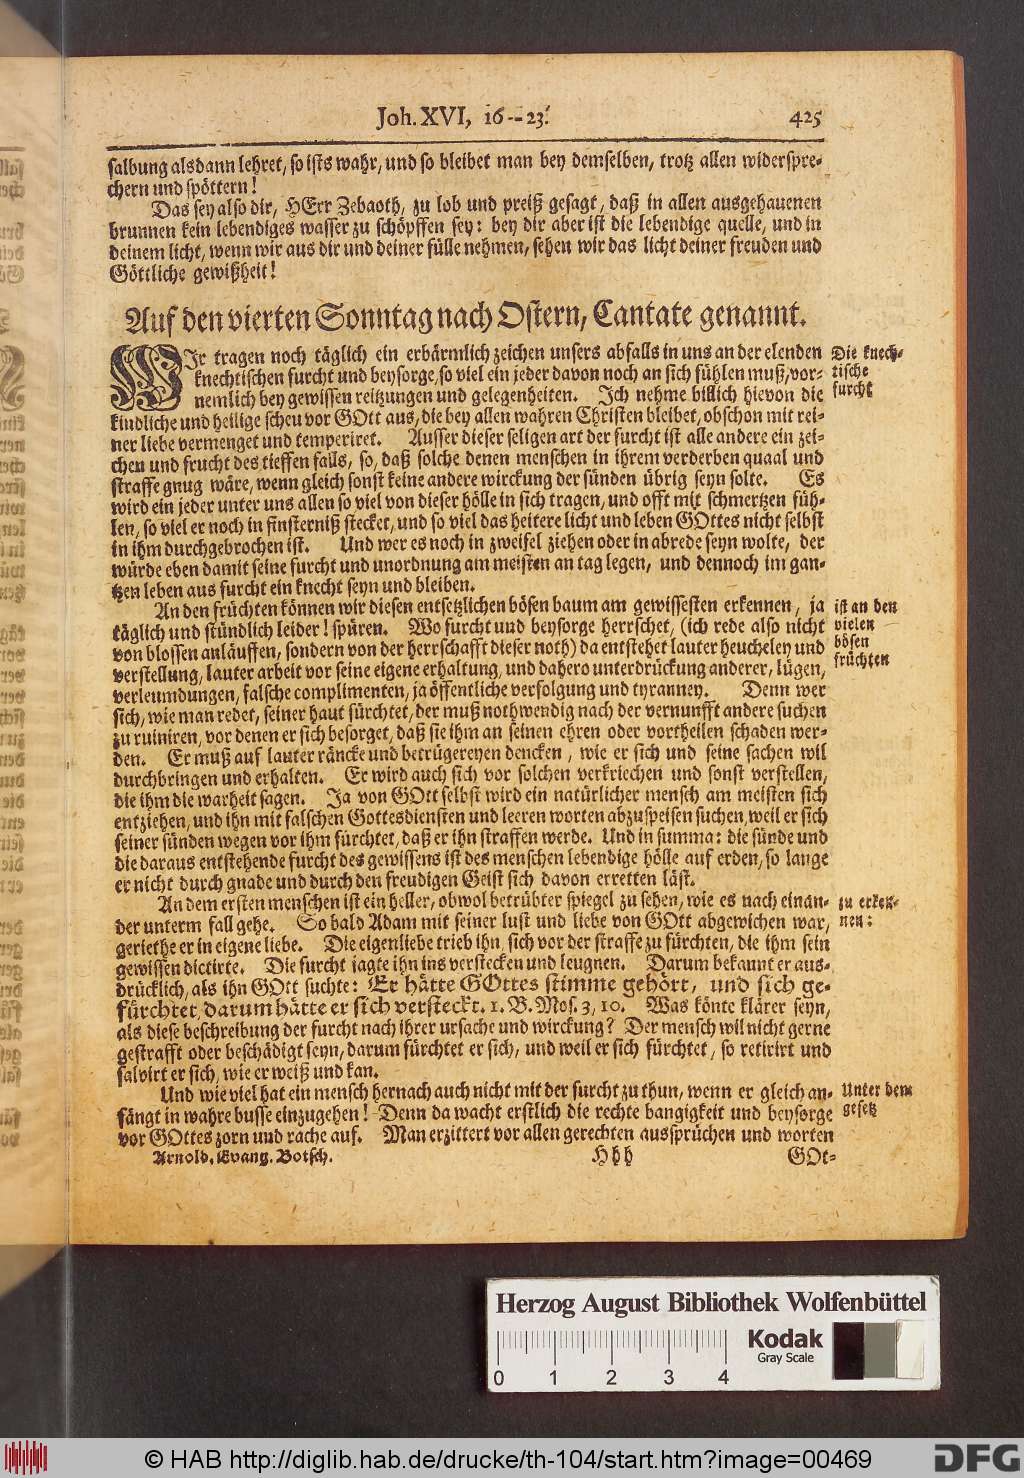 Joh. XVI, 16--23. 425
salbung alsdann lehret, so ists wahr, und so bleibet man bey demselben, trotz allen widerspre-
chern und spöttern!
Das sey also dir, HErr Zebaoth, zu lob und preiß gesagt, daß in allen ausgehauenen
brunnen kein lebendiges wasser zu schöpffen sey: bey dir aber ist die lebendige quelle, und in
deinem licht, wenn wir aus dir und deiner fülle nehmen, sehen wir das licht deiner freuden und
Göttliche gewißheit!
Auf den vierten Sonntag nach Ostern, Cantate genannt.
WIr tragen noch täglich ein erbärmlich zeichen unsers abfalls in uns an der elenden
knechtischen furcht und beysorge, so viel ein jeder davon noch an sich fühlen muß, vor-
nemlich bey gewissen reitzungen und gelegenheiten. Ich nehme billich hievon die
kindliche und heilige scheu vor GOtt aus, die bey allen wahren Christen bleibet, obschon mit rei-
ner liebe vermenget und temperiret. Ausser dieser seligen art der furcht ist alle andere ein zei-
chen und frucht des tieffen falls, so, daß solche denen menschen in ihrem verderben quaal und
straffe gnug wäre, wenn gleich sonst keine andere wirckung der sünden übrig seyn solte. Es
wird ein jeder unter uns allen so viel von dieser hölle in sich tragen, und offt mit schmertzen füh-
len, so viel er noch in finsterniß stecket, und so viel das heitere licht und leben GOttes nicht selbst
in ihm durchgebrochen ist. Und wer es noch in zweifel ziehen oder in abrede seyn wolte, der
würde eben damit seine furcht und unordnung am meisten an tag legen, und dennoch im gan-
tzen leben aus furcht ein knecht seyn und bleiben.
Die knech-
tische
furcht
An den früchten können wir diesen entsetzlichen bösen baum am gewissesten erkennen, ja
täglich und stündlich leider! spüren. Wo furcht und beysorge herrschet, (ich rede also nicht
von blossen anläuffen, sondern von der herrschafft dieser noth) da entstehet lauter heucheley und
verstellung, lauter arbeit vor seine eigene erhaltung, und dahero unterdrückung anderer, lügen,
verleumdungen, falsche complimenten, ja öffentliche verfolgung und tyranney. Denn wer
sich, wie man redet, seiner haut fürchtet, der muß nothwendig nach der vernunfft andere suchen
zu ruiniren, vor denen er sich besorget, daß sie ihm an seinen ehren oder vortheilen schaden wer-
den. Er muß auf lauter räncke und betrügereyen dencken, wie er sich und seine sachen wil
durchbringen und erhalten. Er wird auch sich vor solchen verkriechen und sonst verstellen,
die ihm die warheit sagen. Ja von GOtt selbst wird ein natürlicher mensch am meisten sich
entziehen, und ihn mit falschen Gottesdiensten und leeren worten abzuspeisen suchen, weil er sich
seiner sünden wegen vor ihm fürchtet, daß er ihn straffen werde. Und in summa: die sünde und
die daraus entstehende furcht des gewissens ist des menschen lebendige hölle auf erden, so lange
er nicht durch gnade und durch den freudigen Geist sich davon erretten läst.
ist an den
vielen
bösen
früchten
An dem ersten menschen ist ein heller, obwol betrübter spiegel zu sehen, wie es nach einan-
der unterm fall gehe. So bald Adam mit seiner lust und liebe von GOtt abgewichen war,
geriethe er in eigene liebe. Die eigenliebe trieb ihn, sich vor der straffe zu fürchten, die ihm sein
gewissen dictirte. Die furcht jagte ihn ins verstecken und leugnen. Darum bekannt er aus-
drücklich, als ihn GOtt suchte: Er hätte GOttes stimme gehört, und sich ge-
fürchtet, darum hätte er sich versteckt. 1. B. Mos. 3, 10. Was könte klärer seyn,
als diese beschreibung der furcht nach ihrer ursache und wirckung? Der mensch wil nicht gerne
gestrafft oder beschädigt seyn, darum fürchtet er sich, und weil er sich fürchtet, so retirirt und
salvirt er sich, wie er weiß und kan.
zu erken-
nen:
Und wie viel hat ein mensch hernach auch nicht mit der furcht zu thun, wenn er gleich an-
fängt in wahre busse einzugehen! Denn da wacht erstlich die rechte bangigkeit und beysorge
vor GOttes zorn und rache auf. Man erzittert vor allen gerechten aussprüchen und worten
Unter dem
gesetz
Arnold. Evang. Botsch. Hhh GOt-
Herzog August Bibliothek Wolfenbüttel
Kodak
Gray Scale
0 1 2 3 4
© HAB http://diglib.hab.de/drucke/th-104/start.htm?image=00469
DFG